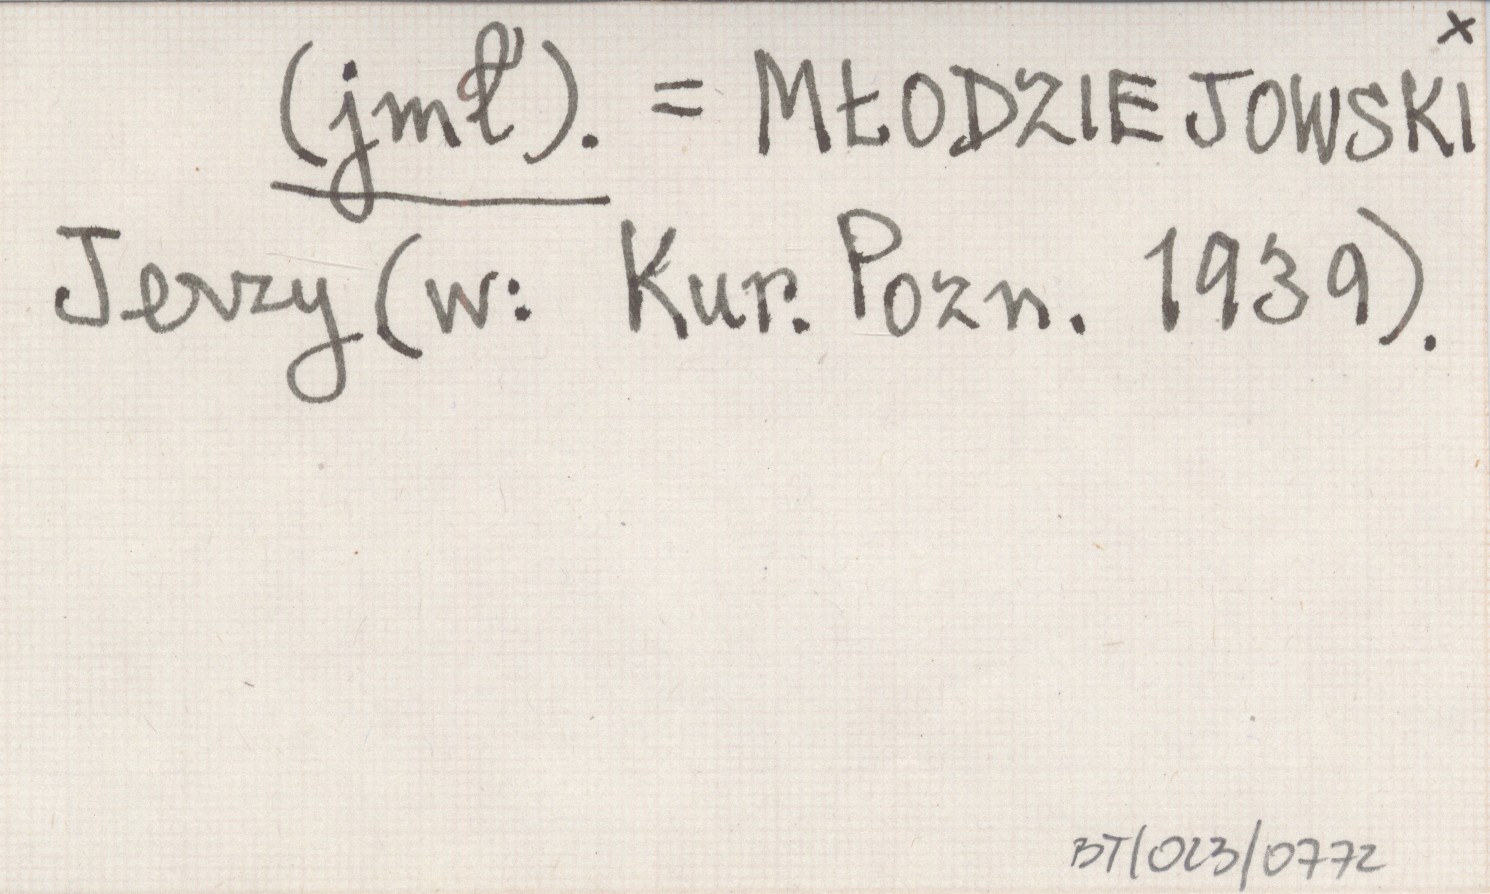 x
(jmł). = MŁODZIEJOWSKI
Jerzy (w: Kur. Pozn. 1939).
BT/023/0772